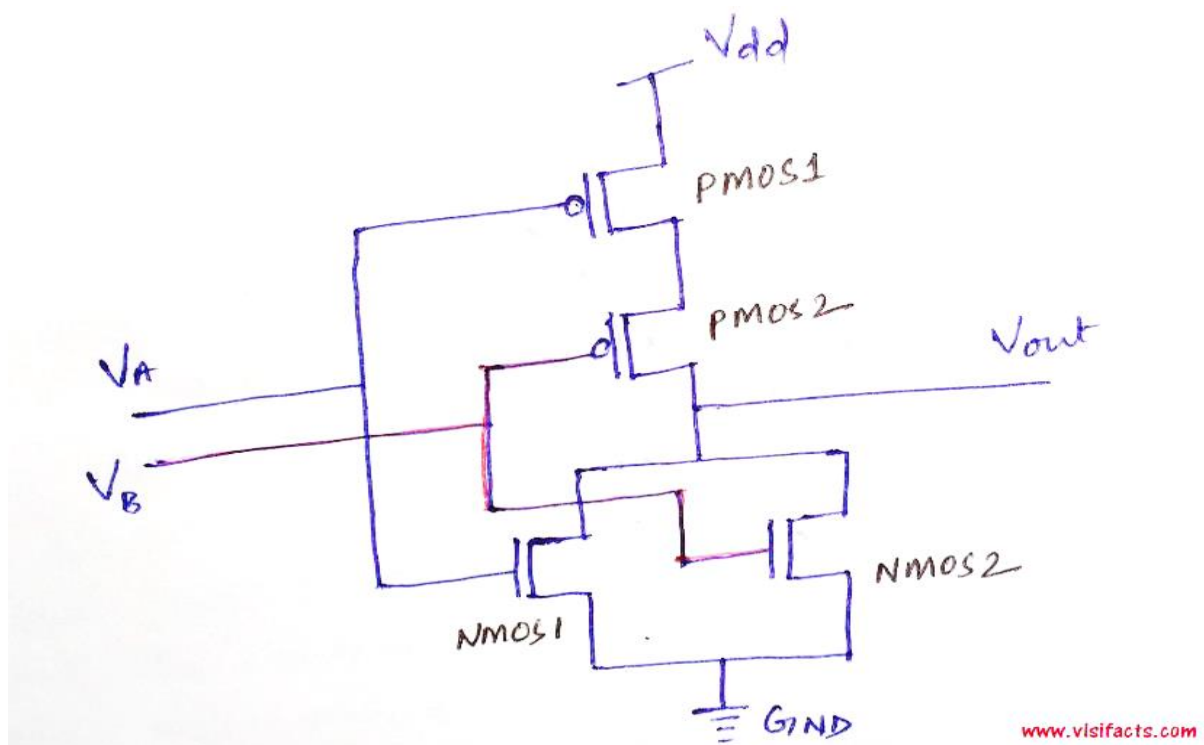 Vdd
PMOS1
PMOS2
Vout
VA
VB
NMOS2
NMOS1
GND
www.vlsifacts.com